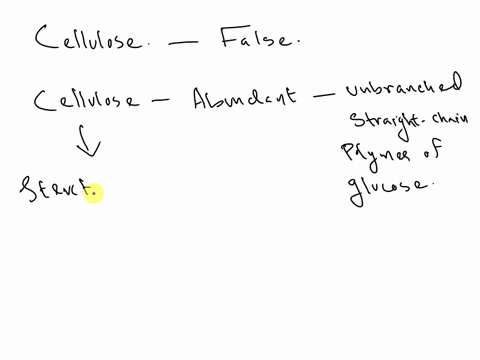 Cellulose. — False.
Cellulose — Abundant — unbranched
Straight-chain
Plymer of
glucose.
Struct.